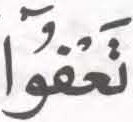 تَعْفُوٓا